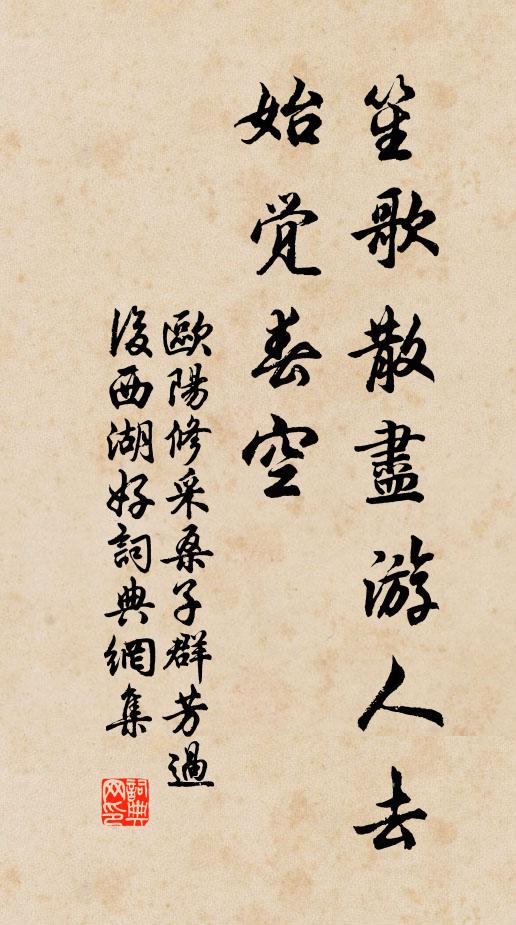 笙歌散盡游人去
始觉春空
歐陽修采桑子群芳過
後西湖好詞典網集
詞典
网印